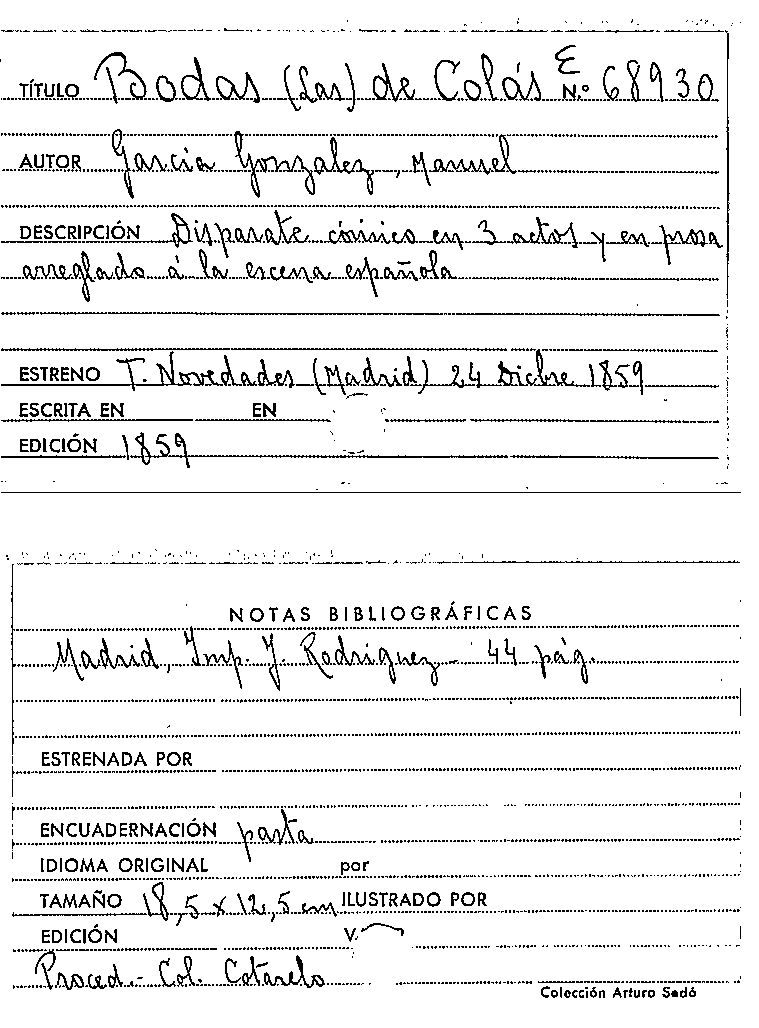 TÍTULO Bodas (Las) de Colás E N.º 68930
AUTOR García Gonzalez, Manuel
DESCRIPCIÓN Disparate cómico en 3 actos y en prosa
arreglado á la escena española
ESTRENO T. Novedades (Madrid) 24 Dicbre 1859
ESCRITA EN EN
EDICIÓN 1859
NOTAS BIBLIOGRÁFICAS
Madrid, Imp. J. Rodriguez - 44 pág.
ESTRENADA POR
ENCUADERNACIÓN pasta
IDIOMA ORIGINAL por
TAMAÑO 18,5 x 12,5 cm ILUSTRADO POR
EDICIÓN V.
Proced.- Col. Cotarelo
Colección Arturo Sedó